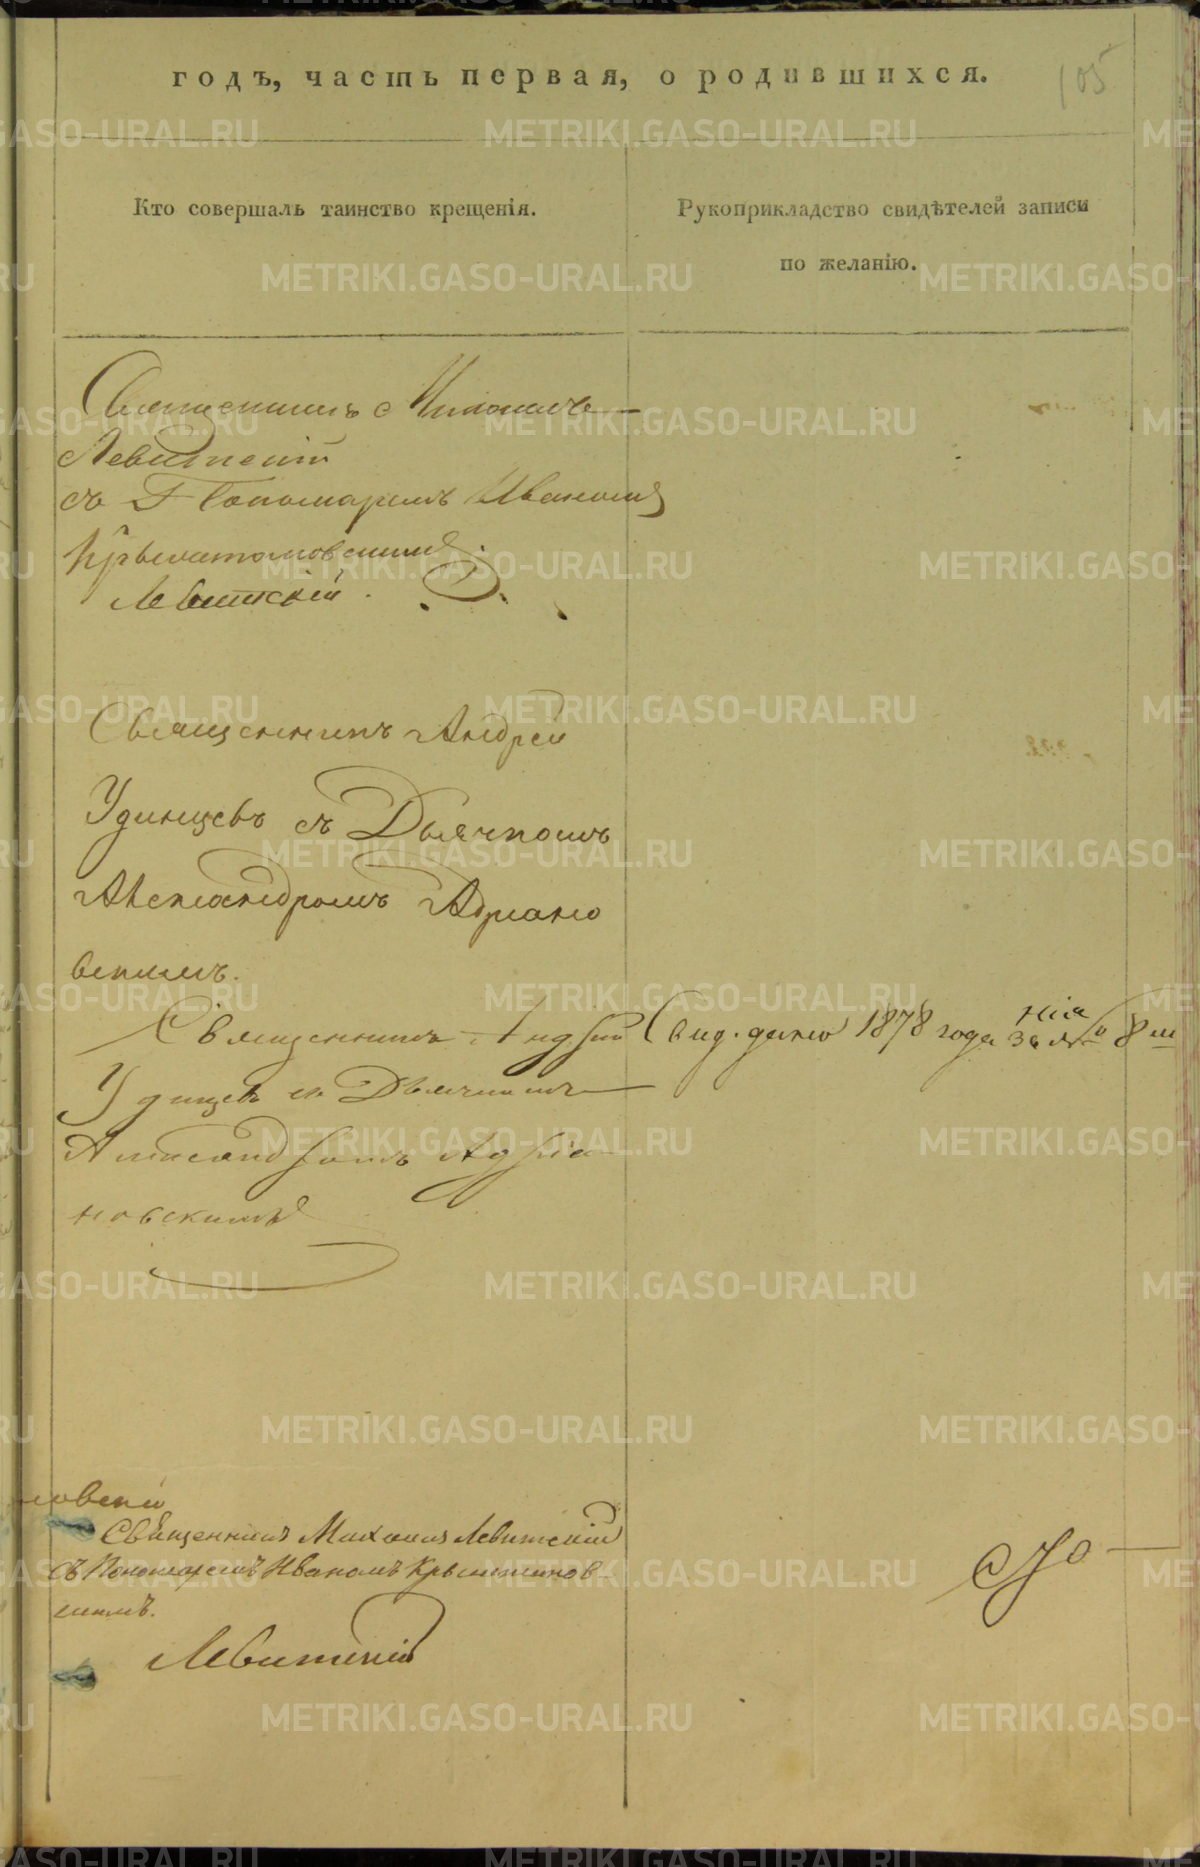 годъ, часть первая, о родившихся.
105
Кто совершалъ таинство крещенія.
Рукоприкладство свидѣтелей записи
по желанію.
Священникъ Михаилъ
Левитскій
съ Пономаремъ Иваномъ
Левитскій.
Священникъ Андрей
Удинцевъ съ Дьячкомъ
Александромъ Адриано
вскимъ.
Священникъ Андрей
Удинцевъ съ Дьячкомъ
Александромъ Адріа
новскимъ
Свид. дано 1878 года
за № 8
Священникъ Михаилъ Левитскій
съ Пономаремъ Иваномъ
Левитскій
METRIKI.GASO-URAL.RU